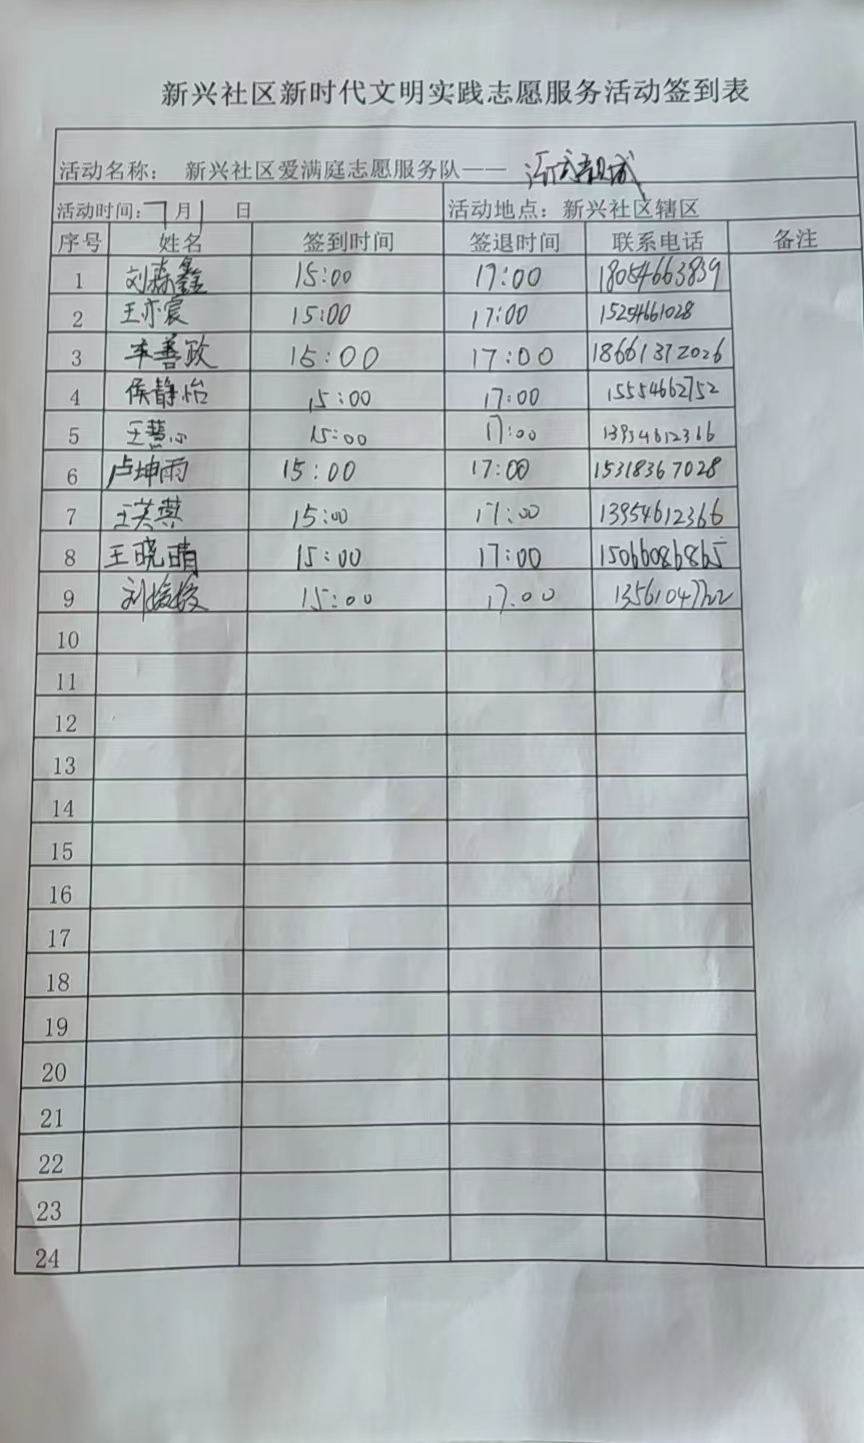 新兴社区新时代文明实践志愿服务活动签到表
活动名称： 新兴社区爱满庭志愿服务队——
活动时间：7月1日 活动地点：新兴社区辖区
序号 姓名 签到时间 签退时间 联系电话 备注
1 刘森鑫 15:00 17:00 18054663839
2 王亦宸 15:00 17:00 15254661028
3 李善政 15:00 17:00 18661372026
4 侯静怡 15:00 17:00 15554662752
5 王慧心 15:00 17:00 13954612366
6 卢坤雨 15:00 17:00 15318367028
7 王英燕 15:00 17:00 13954612366
8 王晓晴 15:00 17:00 15066086865
9 刘媛媛 15:00 17:00 13561047722
10
11
12
13
14
15
16
17
18
19
20
21
22
23
24